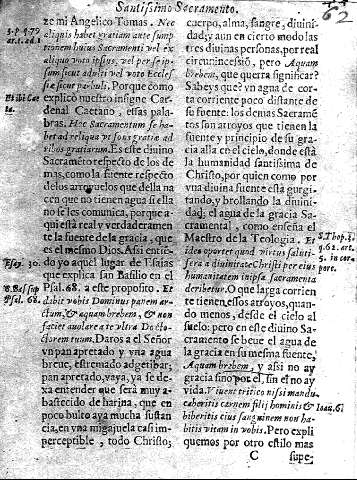 Santissimo Sacramento.
62
ze mi Angelico Tomas. Nec
aliquis habet gratiam ante sump
tionem huius Sacramenti vel ex
aliquo voto ipsius, vel per se ip-
sum sicut adulti vel voto Eccles
siæ sicut paruuli. Porque como
explicò nuestro insigne Car-
denal Caetano, essas pala-
bras. Hoc Sacramentum se ha-
bet ad reliqua vt fons gratiæ ad
ribos gratiarum. Es este diuino
Sacrameto respecto de los de
mas, como la fuente respecto
de los arroyuelos que della na
cen que no tienen agua si ella
no se les comunica, porque a-
qui està real y verdaderamen
te la fuente de la gracia, que
es el mesmo Dios. Assi entie-
do yo aquel lugar de Esaias
que explica san Basilio en el
Psal. 68. a este proposito. Et
dabit vobis Dominus panem ar-
ctum, & aquam brebem, & non
faciet auolare a te vltra Docto-
rem tuum. Daros a el Señor
vn pan apretado y vna agua
breue, estremado adgetibar;
pan apretado, vaya, ya se de-
xa entender que serà muy a-
bastecido de harina, que en
poco bulto aya mucha sustan
cia, en vna migajuela casi im-
perceptible, todo Christo;
3. p. q. 79
art. 1. ad 1
Et ibi Cae
ta.
Esay. 30.
S. Bas. sup
Psal. 68.
cuerpo, alma, sangre, diuini-
dad; y aun en cierto modo las
tres diuinas personas, por real
circuincesiò, pero Aquam
brebem, que querra significar?
Sabeys que? vn agua de cor-
ta corriente poco distante de
su fuente: los demas Sacramé
tos son arroyos que tienen la
fuente y principio de su gra-
cia alla en el cielo, donde està
la humanidad santissima de
Christo, por quien como por
vna diuina fuente està gurgi-
tando, y brollando la diuini-
dad; el agua de la gracia Sa-
cramental, como enseña el
Maestro de la Teologia. Et
ideo oportet quod virtus saluti-
fera a diuinitate Christi per eius
humanitatem in ipsa sacramenta
deribetur. O que larga corrien
te tienen, essos arroyos, quan-
do menos, desde el cielo al
suelo: pero en este diuino Sa-
cramento se beue el agua de
la gracia en su mesma fuente,
Aquam brebem, y assi no ay
gracia sino por el, sin el no ay
vida. Viuent tritico nisi mandu-
caberitis carnem filij hominis &
biberitis eius sanguinem non ha-
bitis vitam in vobis. Pero expli
quemos por otro estilo mas
S. Thop. 3.
q. 62. art.
5. in cor-
pore.
Ioan. 6.
C supe-